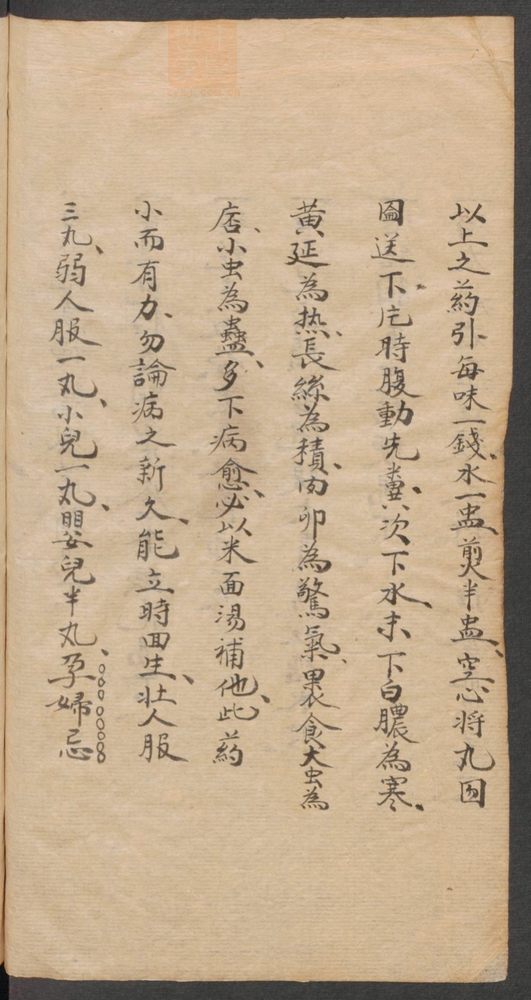 以上之葯引每味一錢水一盅煎半盅空心將丸囫
圇送下片時腹動先糞次下水末下白膿為寒
黃延為热長絲為積肉卵為驚氣裹食大虫為
痞小虫為蠱多下病愈必以米面湯補他此葯
小而有力勿論病之新久能立時回生壯人服
三丸弱人服一丸小兒一丸嬰兒半丸孕婦忌